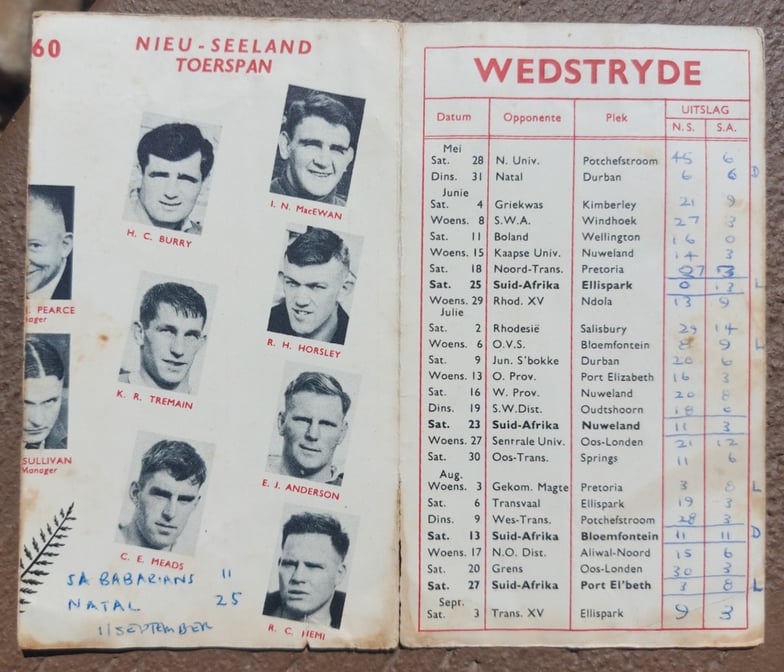 60
NIEU-SEELAND
TOERSPAN
I. N. MacEWAN
H. C. BURRY
PEARCE
ager
R. H. HORSLEY
K. R. TREMAIN
SULLIVAN
Manager
E. J. ANDERSON
C. E. MEADS
R. C. HEMI
SA BABARIANS 11
NATAL 25
11 SEPTEMBER
WEDSTRYDE
Datum Opponente Plek UITSLAG
N.S. S.A.
Mei
Sat. 28 N. Univ. Potchefstroom 45 6
Dins. 31 Natal Durban 6 6 D
Junie
Sat. 4 Griekwas Kimberley 21 9
Woens. 8 S.W.A. Windhoek 27 3
Sat. 11 Boland Wellington 16 0
Woens. 15 Kaapse Univ. Nuweland 14 3
Sat. 18 Noord-Trans. Pretoria 27 3
Sat. 25 Suid-Afrika Ellispark 0 13 L
Woens. 29 Rhod. XV Ndola 13 9
Julie
Sat. 2 Rhodesië Salisbury 29 14
Woens. 6 O.V.S. Bloemfontein 8 9 L
Sat. 9 Jun. S'bokke Durban 20 6
Woens. 13 O. Prov. Port Elizabeth 16 3
Sat. 16 W. Prov. Nuweland 20 8
Dins. 19 S.W.Dist. Oudtshoorn 18 6
Sat. 23 Suid-Afrika Nuweland 11 3
Woens. 27 Sentrale Univ. Oos-Londen 21 12
Sat. 30 Oos-Trans. Springs 11 6
Aug.
Woens. 3 Gekom. Magte Pretoria 3 8 L
Sat. 6 Transvaal Ellispark 19 3
Dins. 9 Wes-Trans. Potchefstroom 28 3
Sat. 13 Suid-Afrika Bloemfontein 11 11 D
Woens. 17 N.O. Dist. Aliwal-Noord 15 6
Sat. 20 Grens Oos-Londen 30 3
Sat. 27 Suid-Afrika Port El'beth 3 8 L
Sept.
Sat. 3 Trans. XV Ellispark 9 3